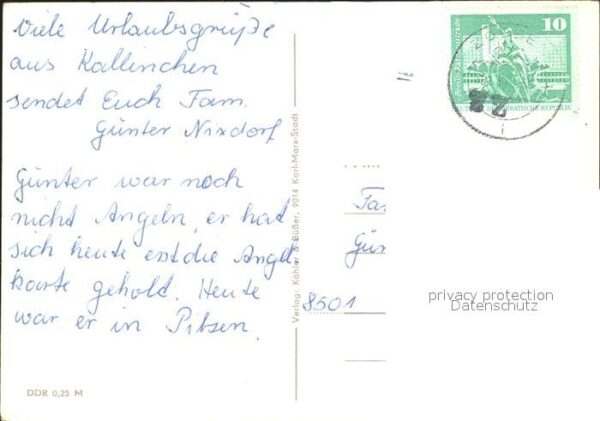 Viele Urlaubsgrüße
aus Kallinchen
sendet Euch Fam.
Günter Nixdorf
Günter war noch
nicht Angeln, er hat
sich heute erst die Angel
karte geholt. Heute
war er in Pilsen.
DDR 0,25 M
Verlag: Köhler & Büßer, 9014 Karl-Marx-Stadt
10
Fa
Gün
8501
privacy protection
Datenschutz